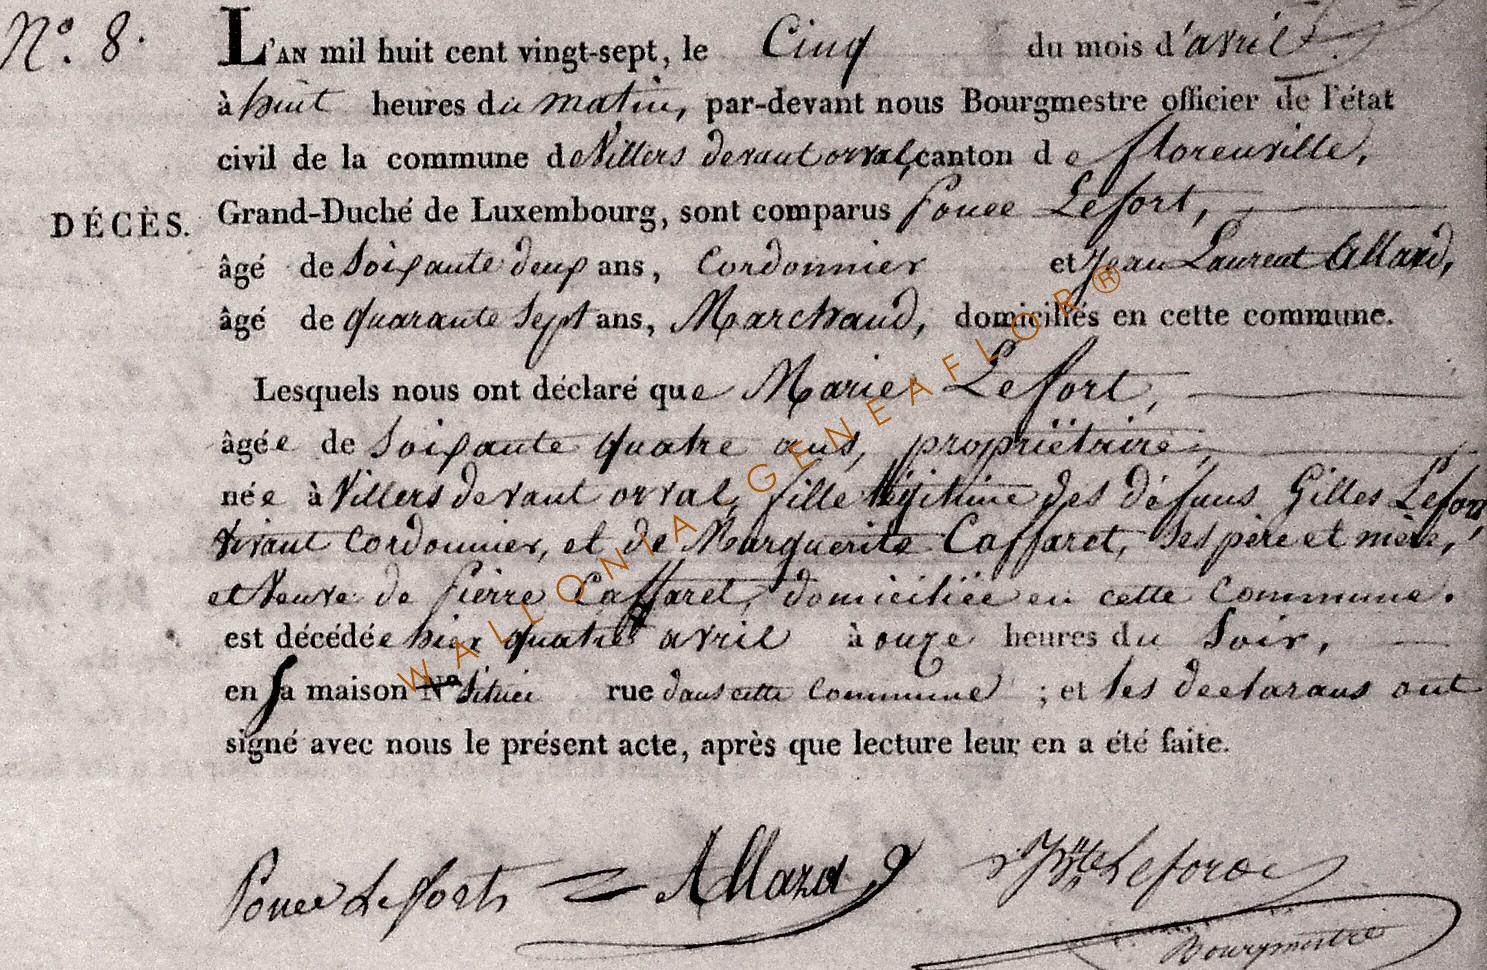 N.º 8.
L'AN mil huit cent vingt-sept, le Cinq du mois d'avril
à huit heures du matin, par-devant nous Bourgmestre officier de l'état
civil de la commune de Villers devant orval, canton de florenville,
DÉCÈS.
Grand-Duché de Luxembourg, sont comparus Ponce Lefort,
âgé de Soixante deux ans, Cordonnier et Jean Laurent Allard,
âgé de quarante Sept ans, Marchand, domiciliés en cette commune.
Lesquels nous ont déclaré que Marie Lefort,
âgée de Soixante quatre ans, propriétaire,
née à Villers devant orval, fille légitime des défuns Gilles Lefort,
vivant Cordonnier, et de Marguerite Caffaret, Ses père et mère,
et Veuve de Pierre Caffaret, domiciliée en cette Commune.
est décédée hier quatre avril à onze heures du Soir,
en Sa maison N.º Située rue dans cette Commune ; et les declarans ont
signé avec nous le présent acte, après que lecture leur en a été faite.
Ponce Lefort Allard Lefort
Bourgmestre
WALLONIA GENEAFLOR®